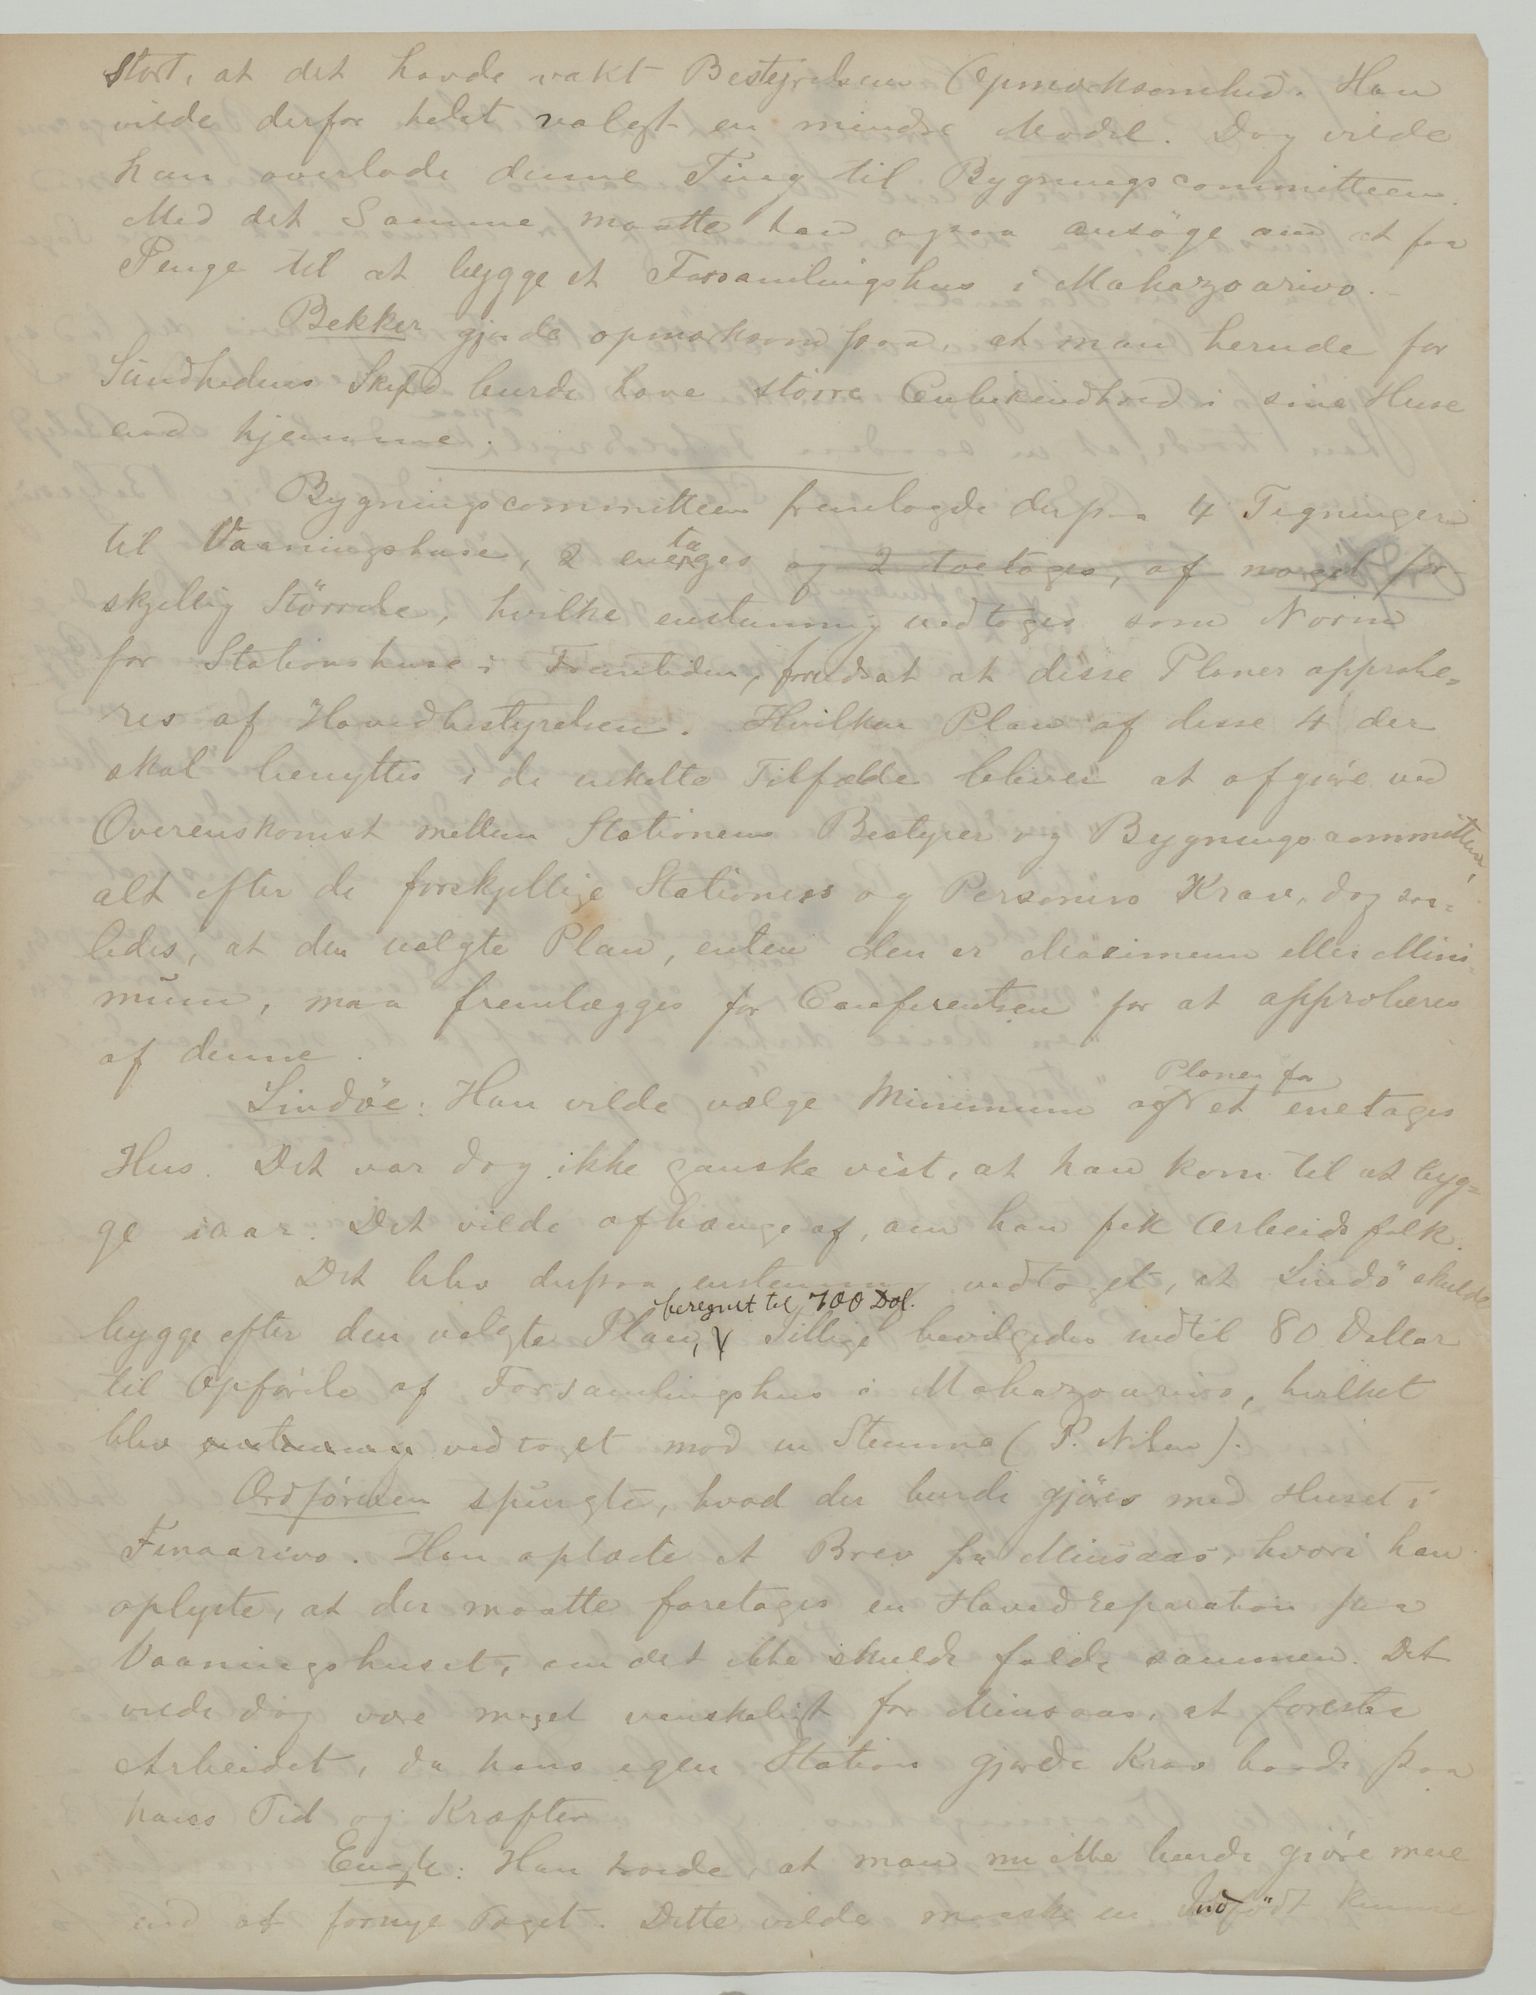 stort, at det havde vakt Bestyrelsens Opmærksomhed. Han
vilde derfor helst valgt en mindre Model. Dog vilde
han overlade denne Ting til Bygningscommitteen.
Med det Samme maatte han ogsaa ansöge om at faa
Penge til at bygge et Forsamlingshus i Mahazoarivo.
Bekker gjorde opmærksom paa, at man herude for
Sundhedens Skyld burde have större Cubikindhold i sine Huse
end hjemme.
Bygningscommitteen fremlagde derpaa 4 Tegninger
til Vaaningshuse, 2 enetages og 2 toetages, af noget for-
skjellig Störrelse, hvilke enstemmig vedtoges som Norm
for Stationshuse i Fremtiden, forudsat at disse Planer approbe-
res af Hovedbestyrelsen. Hvilken Plan af disse 4 der
skal benyttes i de enkelte Tilfælde bliver at afgjöre ved
Overenskomst mellem Stationens Bestyrer og Bygningscommitteen,
alt efter de forskjellige Stationers og Personers Krav, dog saa-
ledes, at den valgte Plan, enten den er Maximum eller Mini-
mum, maa fremlægges for Conferentsen for at approberes
af denne.
Planer for
Lindöe: Han vilde vælge Minimum af et enetages
Hus. Det var dog ikke ganske vist, at han kom til at byg-
ge iaar. Det vilde afhænge af, om han fik Arbeidsfolk.
Det blev derpaa enstemmig vedtaget, at Lindö skulde
beregnet til 700 Dol.
bygge efter den valgte Plan, Tillige bevilgedes indtil 80 Dollar
til Opförelse af Forsamlingshus i Mahazoarivo, hvilket
blev enstemmig vedtaget mod en Stemme (P. Nilsen).
Ordföreren spurgte, hvad der burde gjöres med Huset i
Finaarivo. Han oplæste et Brev fra Minsaas, hvori han
oplyste, at der maatte foretages en Hovedreparation paa
Vaaningshuset, om det ikke skulde falde sammen. Det
vilde dog være meget vanskeligt for Minsaas, at forestaa
Arbeidet, da hans egen Station gjorde Krav baade paa
hans Tid og Kræfter
Engh: Han troede, at man nu ikke burde gjöre mere
end at fornye Taget. Dette vilde maaske en Indfödt kunne